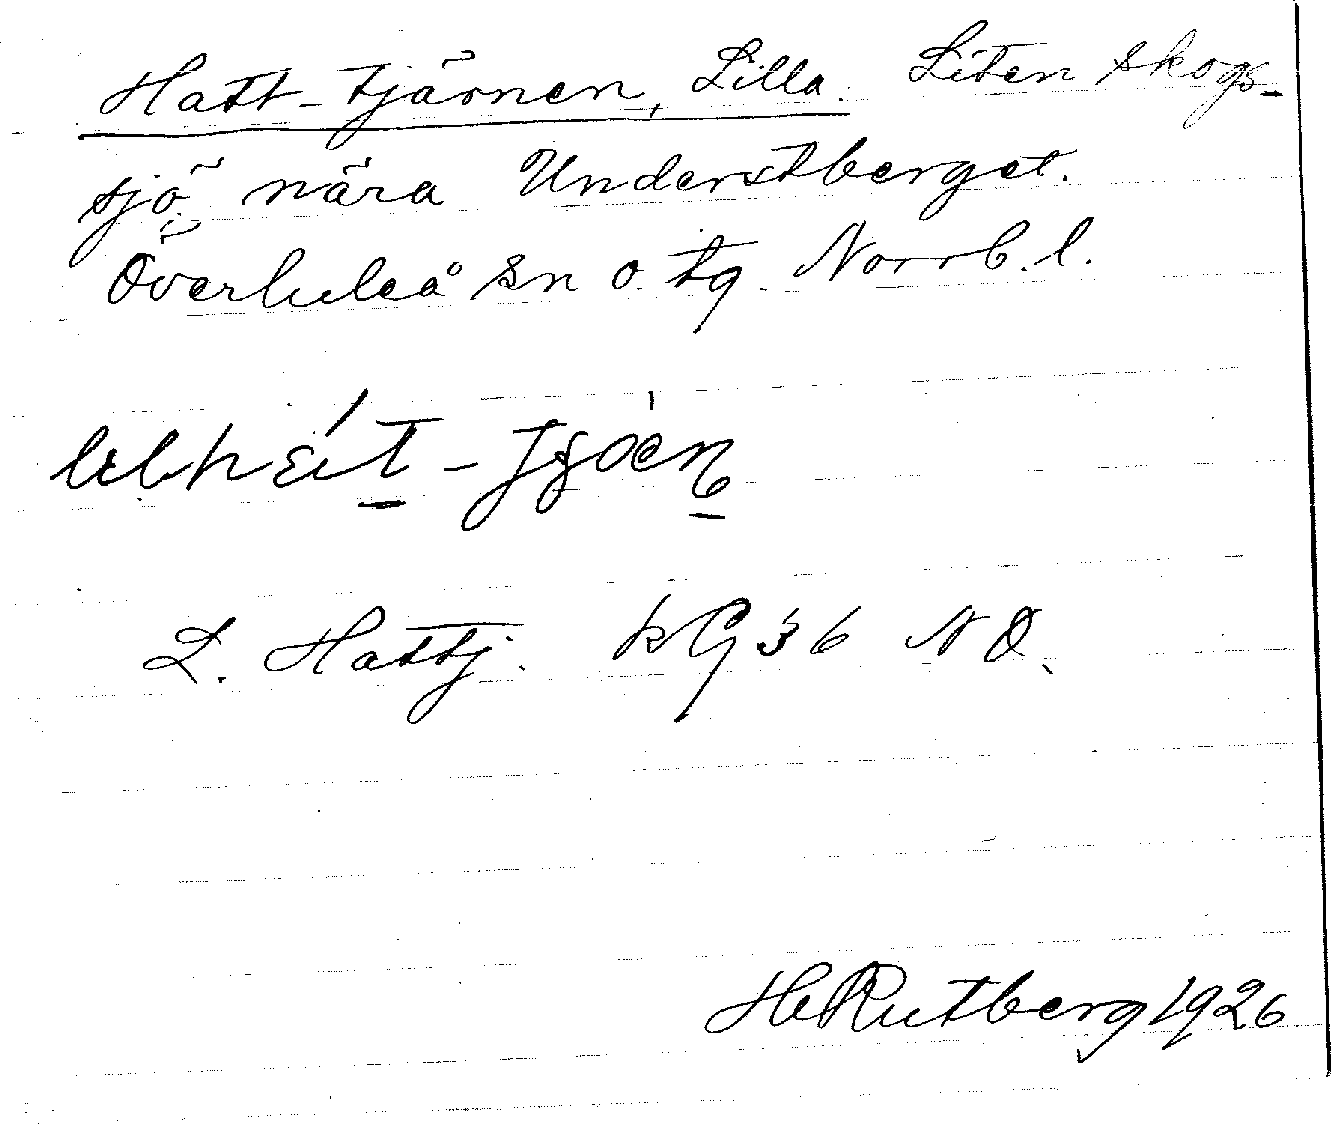 Hatt-tjärnen, Lilla. Liten skogs-
sjö nära Understberget.
Överluleå sn o tg Norrb. l.
L. Hattj. kG 36 NO.
H Rutberg 1926